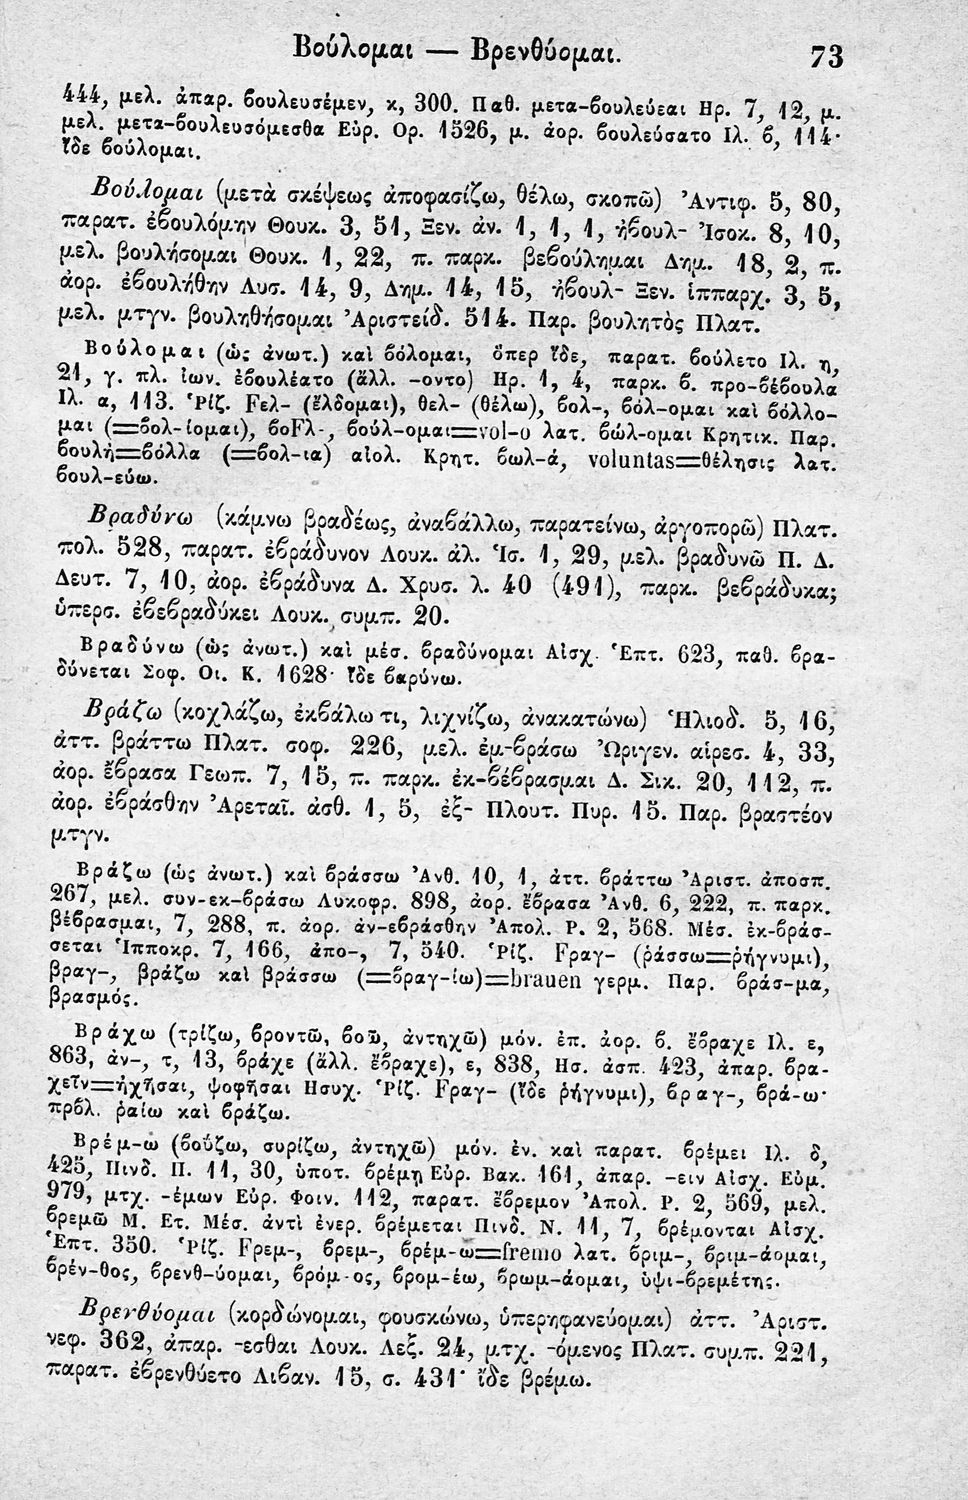 Βούλομαι — Βρενθύομαι. 73
444, μελ. ἀπαρ. ϐουλευσέμεν, κ, 300. Παθ. μετα-ϐουλεύεαι Ηρ. 7, 12, μ.
μελ. μετα-ϐουλευσόμεσθα Εὐρ. Ορ. 1526, μ. ἀορ. ϐουλεύσατο Ιλ. ϐ, 114·
ἴδε ϐούλομαι.
Βούλομαι (μετὰ σκέψεως ἀποφασίζω, θέλω, σκοπῶ) Ἀντιφ. 5, 80,
παρατ. ἐϐουλόμην Θουκ. 3, 51, Ξεν. ἀν. 1, 1, 1, ἠϐουλ- Ἰσοκ. 8, 10,
μελ. βουλήσομαι Θουκ. 1, 22, π. παρκ. βεϐούλημαι Δημ. 18, 2, π.
ἀορ. ἐϐουλήθην Λυσ. 14, 9, Δημ. 14, 15, ἠϐουλ- Ξεν. ἱππαρχ. 3, 5,
μελ. μτγν. βουληθήσομαι Ἀριστείδ. 514. Παρ. βουλητὸς Πλατ.
Βούλομαι (ὡς ἀνωτ.) καὶ ϐόλομαι, ὅπερ ἴδε, παρατ. ϐούλετο Ιλ. η,
21, γ. πλ. ἰων. ἐϐουλέατο (ἄλλ. -οντο) Ηρ. 1, 4, παρκ. ϐ. προ-ϐέϐουλα
Ιλ. α, 113. Ῥίζ. Fελ- (ἔλδομαι), θελ- (θέλω), ϐολ-, ϐόλ-ομαι καὶ ϐόλλο-
μαι (=ϐολ-ίομαι), ϐοFλ-, ϐούλ-ομαι=vol-o λατ. ϐώλ-ομαι Κρητικ. Παρ.
ϐουλή=ϐόλλα (=ϐολ-ια) αἰολ. Κρητ. ϐωλ-ά, voluntas=θέλησις λατ.
ϐουλ-εύω.
Βραδύνω (κάμνω βραδέως, ἀναϐάλλω, παρατείνω, ἀργοπορῶ) Πλατ.
πολ. 528, παρατ. ἐϐράδυνον Λουκ. ἀλ. Ἱσ. 1, 29, μελ. βραδυνῶ Π. Δ.
Δευτ. 7, 10, ἀορ. ἐϐράδυνα Δ. Χρυσ. λ. 40 (491), παρκ. βεϐράδυκα;
ὑπερσ. ἐϐεϐραδύκει Λουκ. συμπ. 20.
Βραδύνω (ὡς ἀνωτ.) καὶ μέσ. ϐραδύνομαι Αἰσχ. Ἑπτ. 623, παθ. ϐρα-
δύνεται Σοφ. Οι. Κ. 1628· ἴδε ϐαρύνω.
Βράζω (κοχλάζω, ἐκϐάλω τι, λιχνίζω, ἀνακατώνω) Ἡλιοδ. 5, 16,
ἀττ. βράττω Πλατ. σοφ. 226, μελ. ἐμ-ϐράσω Ὠριγεν. αἱρεσ. 4, 33,
ἀορ. ἔϐρασα Γεωπ. 7, 15, π. παρκ. ἐκ-ϐέϐρασμαι Δ. Σικ. 20, 112, π.
ἀορ. ἐϐράσθην Ἀρεταῖ. ἀσθ. 1, 5, ἐξ- Πλουτ. Πυρ. 15. Παρ. βραστέον
μτγν.
Βράζω (ὡς ἀνωτ.) καὶ ϐράσσω Ἀνθ. 10, 1, ἀττ. ϐράττω Ἀριστ. ἀποσπ.
267, μελ. συν-εκ-ϐράσω Λυκοφρ. 898, ἀορ. ἔϐρασα Ἀνθ. 6, 222, π. παρκ.
βέϐρασμαι, 7, 288, π. ἀορ. ἀν-εϐράσθην Ἀπολ. Ρ. 2, 568. Μέσ. ἐκ-ϐράσ-
σεται Ἱπποκρ. 7, 166, ἀπο-, 7, 540. Ῥίζ. Fραγ- (ῥάσσω=ῥήγνυμι),
βραγ-, βράζω καὶ βράσσω (=ϐραγ-ίω)=brauen γερμ. Παρ. ϐράσ-μα,
βρασμός.
Βράχω (τρίζω, ϐροντῶ, ϐοῶ, ἀντηχῶ) μόν. ἐπ. ἀορ. ϐ. ἔϐραχε Ιλ. ε,
863, ἀν-, τ, 13, ϐράχε (ἄλλ. ἔϐραχε), ε, 838, Ησ. ἀσπ. 423, ἀπαρ. ϐρα-
χεῖν=ἠχῆσαι, ψοφῆσαι Ησυχ. Ῥίζ. Fραγ- (ἴδε ῥήγνυμι), ϐραγ-, ϐρά-ω·
πρϐλ. ῥαίω καὶ ϐράζω.
Βρέμ-ω (ϐοΰζω, συρίζω, ἀντηχῶ) μόν. ἐν. καὶ παρατ. ϐρέμει Ιλ. δ,
425, Πινδ. Π. 11, 30, ὑποτ. ϐρέμῃ Εὐρ. Βακ. 161, ἀπαρ. -ειν Αἰσχ. Εὐμ.
979, μτχ. -έμων Εὐρ. Φοιν. 112, παρατ. ἔϐρεμον Ἀπολ. Ρ. 2, 569, μελ.
ϐρεμῶ Μ. Ετ. Μέσ. ἀντὶ ἐνερ. ϐρέμεται Πινδ. Ν. 11, 7, ϐρέμονται Αἰσχ.
Ἑπτ. 350. Ῥίζ. Fρεμ-, ϐρεμ-, ϐρέμ-ω=fremo λατ. ϐριμ-, ϐριμ-άομαι,
ϐρέν-θος, ϐρενθ-ύομαι, ϐρόμ-ος, ϐρομ-έω, ϐρωμ-άομαι, ὑψι-ϐρεμέτης.
Βρενθύομαι (κορδώνομαι, φουσκώνω, ὑπερηφανεύομαι) ἀττ. Ἀριστ.
νεφ. 362, ἀπαρ. -εσθαι Λουκ. Λεξ. 24, μτχ. -όμενος Πλατ. συμπ. 221,
παρατ. ἐϐρενθύετο Λιϐαν. 15, σ. 431· ἴδε βρέμω.